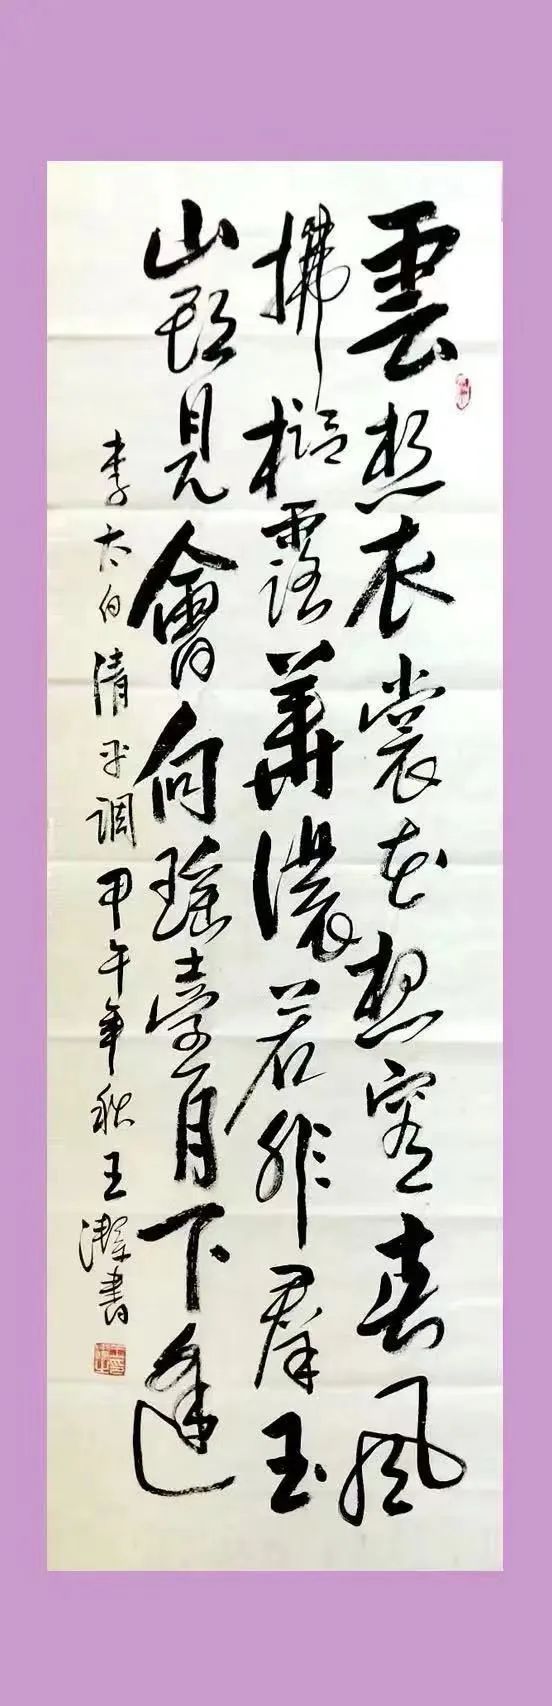 雲想衣裳花想容春風
拂檻露華濃若非群玉
山頭見會向瑤臺月下逢
李太白清平调甲午年秋王潔書